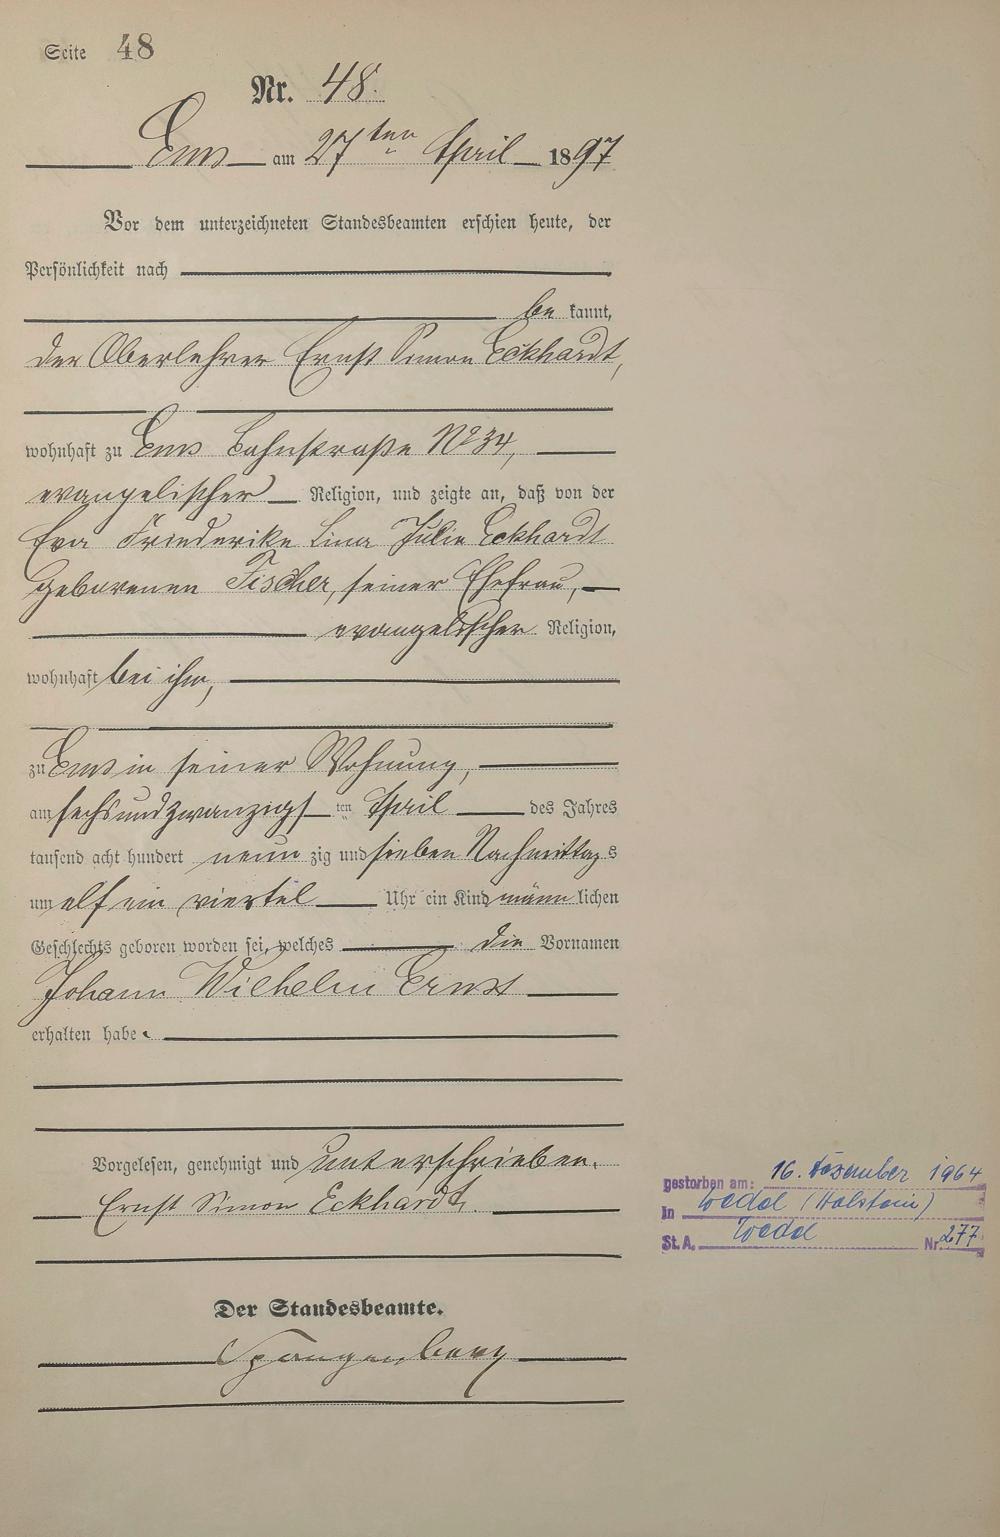 Seite 48
Nr. 48.
Ems am 27ten April 1897
Vor dem unterzeichneten Standesbeamten erschien heute, der
Persönlichkeit nach
be kannt,
der Oberlehrer Ernst Simon Eckhardt,
wohnhaft zu Ems Bahnstraße No 34,
evangelischer Religion, und zeigte an, daß von der
Eva Friederike Lina Julie Eckhardt
geborenen Fischer, seiner Ehefrau,
evangelischer Religion,
wohnhaft bei ihm,
zu Ems in seiner Wohnung,
am sechsundzwanzigsten April des Jahres
tausend acht hundert neun zig und sieben Nachmittags
um elf ein viertel Uhr ein Kind männlichen
Geschlechts geboren worden sei, welches die Vornamen
Johann Wilhelm Ernst
erhalten habe.
Vorgelesen, genehmigt und unterschrieben.
Ernst Simon Eckhardt.
Der Standesbeamte.
Spangenberg
gestorben am: 16. Dezember 1964
In Wedel (Holstein)
St. A. Wedel Nr. 277